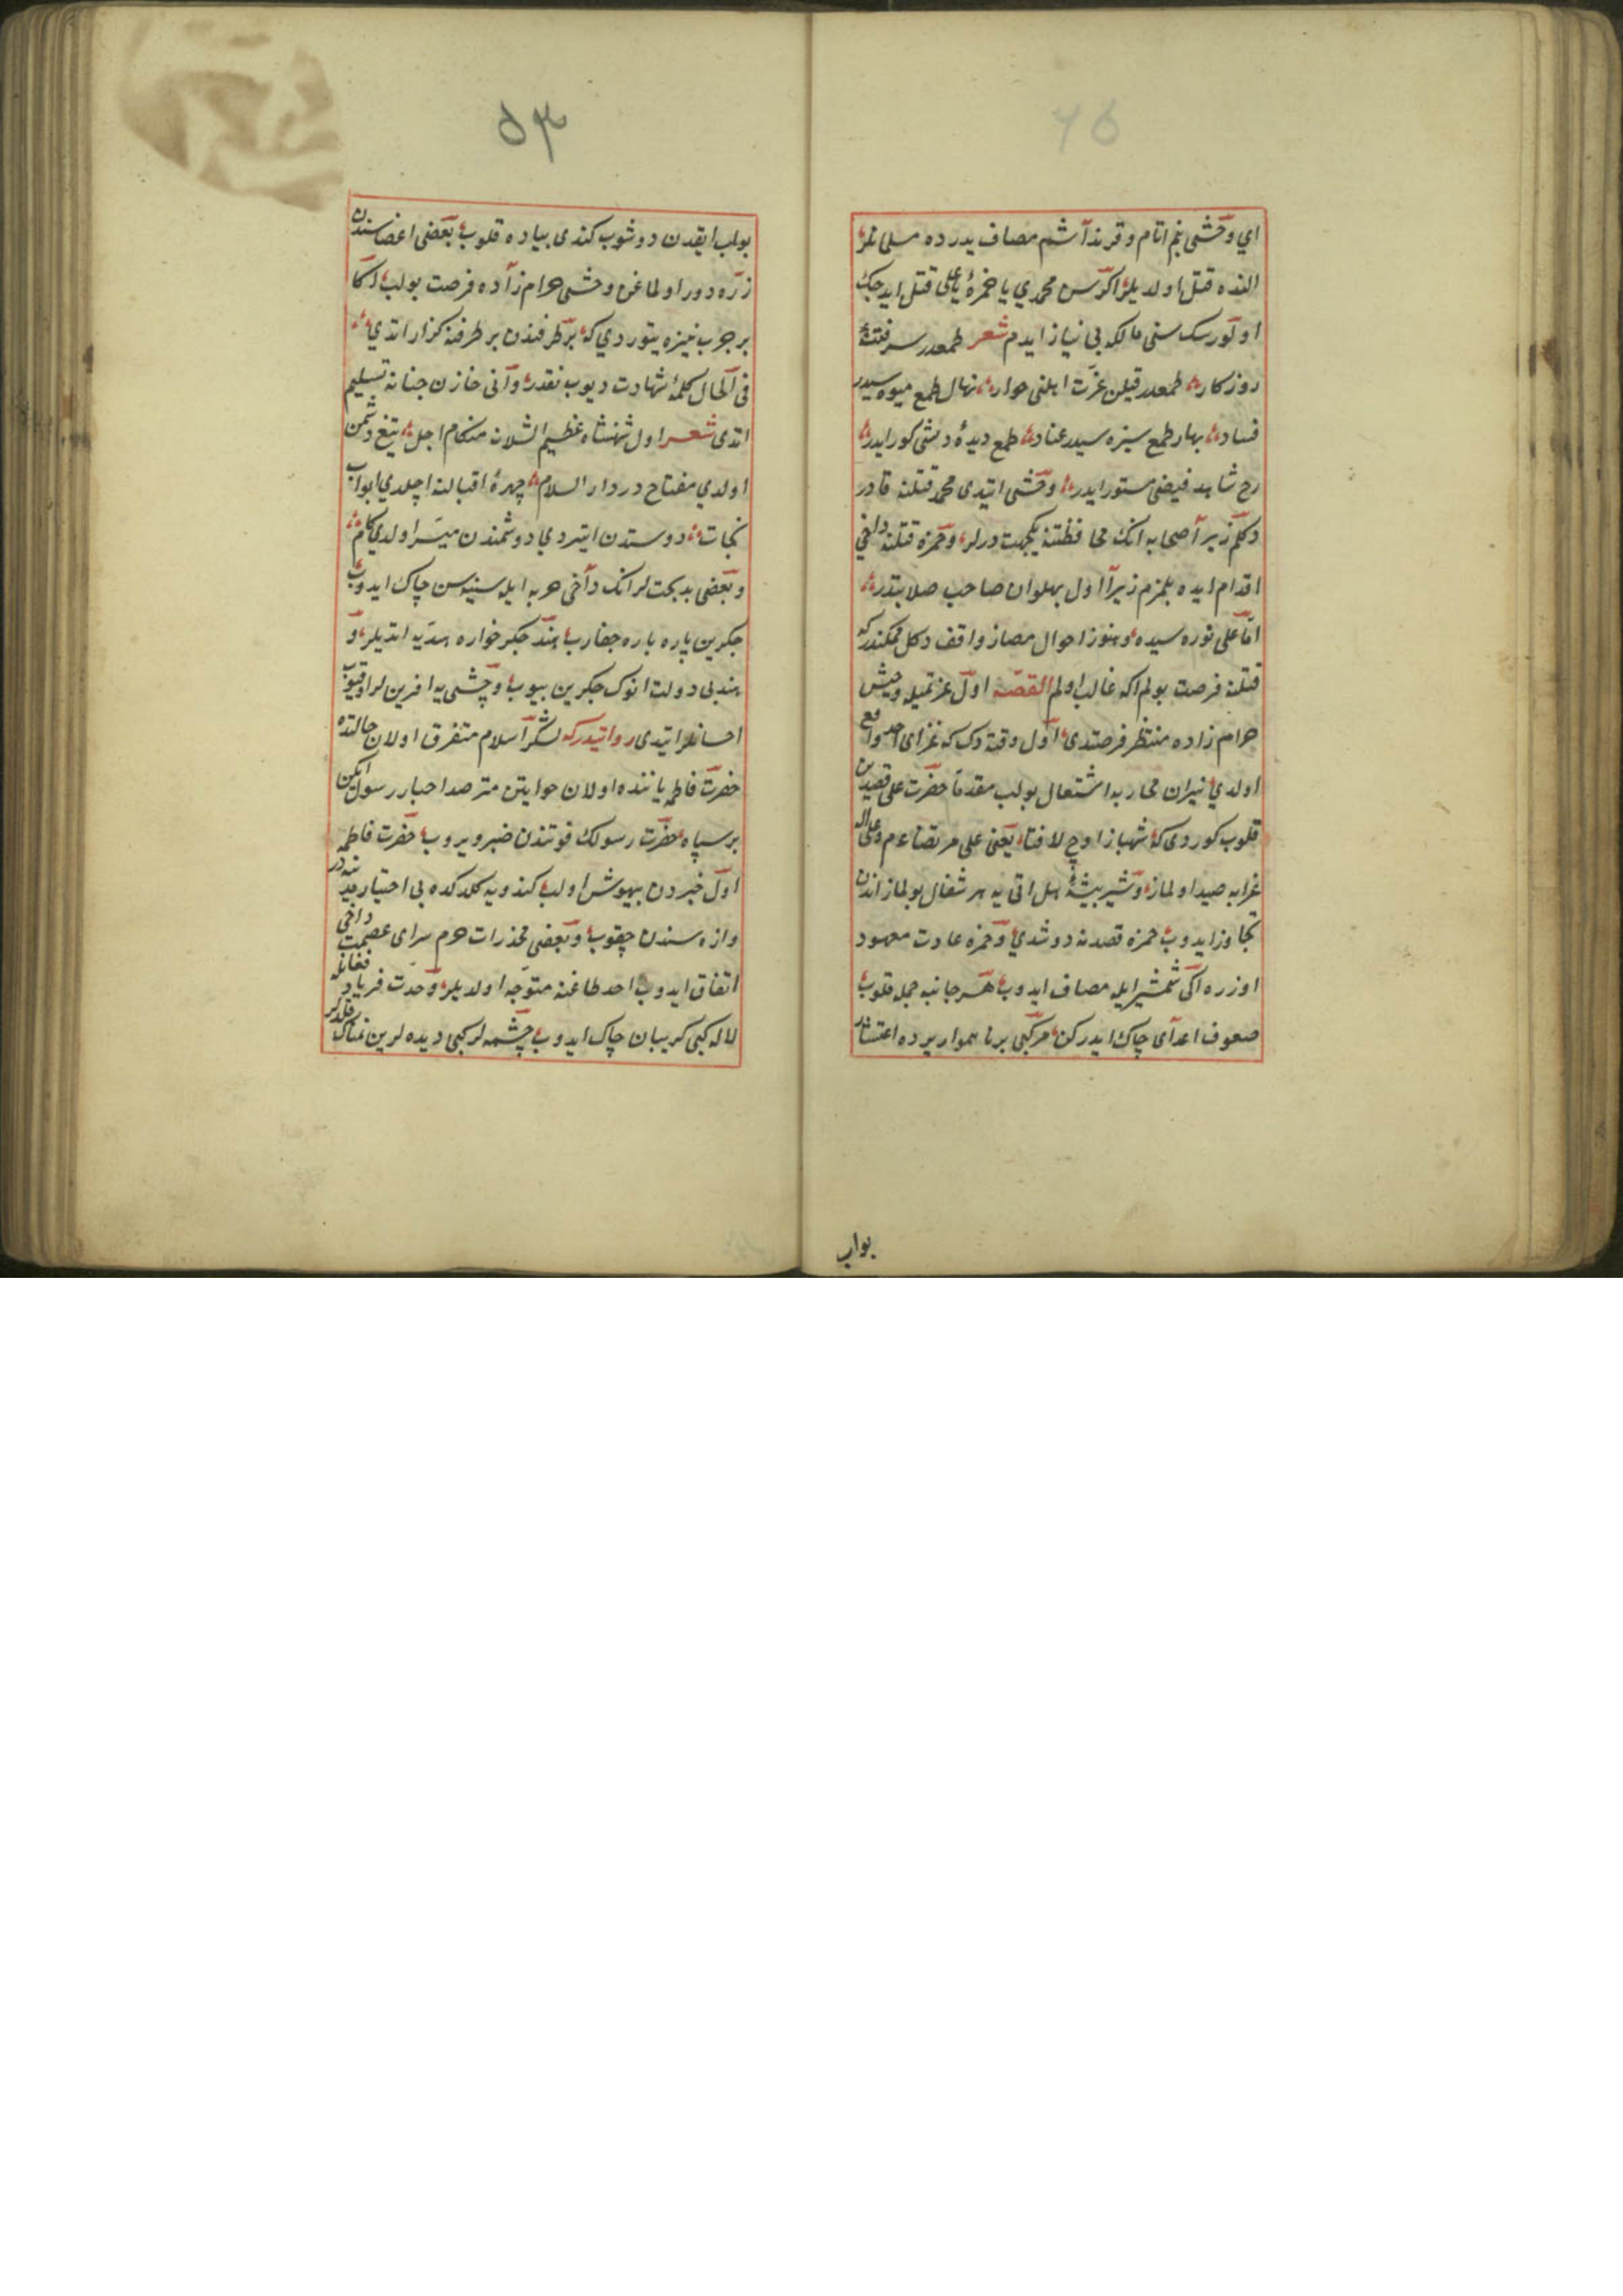 ٥٣
اي وحشی بنم اتام و قرنداشم مصاف بدرده مسلمانلر
النده قتل اولدیلر اکر سن محمدي یا حمزهٔ یا علی قتل ایدجک
اولورسک سنی مالکه بی نیاز ایدم شعر طمعدر سر فتنهٔ
روزکار طمعدر قیلن عزت اهلنی خوار نهال طمع میوه سیدر
فساد بهار طمع سبزه سیدر عناد طمع دیدهٔ دانشی کور ایدر
رخ شاهد فیضی مستور ایدر وحشی ایتدی محمد قتلنه قادر
دکلم زیرا صحابه انک محافظتنه یکجهت درلر و حمزه قتلنه داخی
اقدام ایده بلمزم زیرا اول پهلوان صاحب صلابتدر
اما علی نورسیده و هنوز احوال مصافه واقف دکل ممکندر که
قتلنه فرصت بولم اکه غالب اولم القصه اول عزیمتیله وحشی
حرام زاده منتظر فرصتدی اول وقته دک که غزای احد واقع
اولدي نیران محاربه اشتعال بولب مقدما حضرت علی قصدین
قلوب کوردی که شهباز اوج لافتا یعنی علی مرتضا
غرابه صید اولماز و شیر بیشهٔ هل اتی یه هر شغال بولماز اندن
تجاوز ایدوب حمزه قصدنه دوشدي و حمزه عادت معهود
اوزره ایکی شمشیرایله مصاف ایدوب هر جانبه حمله قلوب
صفوف اعدای چاک ایدرکن مرکبی بر ناهموار یرده
بواب
بولب ایقدن دوشوب کندی پیاده قلوب بعضی اعضاسندن
زره دور اولماغن وحشی حرام زاده فرصت بولب اکا
بر حرب نیزه یتوردي که بر طرفندن بر طرفنه کزار اتدي
فی الحال کلمهٔ شهادت دیوب نقد روانی خازن جنانه تسلیم
اتدی شعر اول شهنشاه عظیم الشانه هنکام اجل تیغ دشمن
اولدي مفتاح در دار السلام چهرهٔ اقبالنه اچلدي ابواب
نجات دوستدن ایتردي دوشمندن میسر اولدي کام
و بعضی بدبخت لر انک داخی حربه ایله سینه سن چاک ایدوب
جکرین پاره پاره جقارب هند جکر خواره هدیه اتدیلر و
هند بی دولت انوک جکرین ییوب وحشی یه افرین لر اوقیوب
احسانلر اتیدی روایتدر که لشکر اسلام متفرق اولان حالتده
حضرت فاطمه یاننده اولان خواتین مترصد اخبار رسول ایکن
بر سپاه حضرت رسولک فوتندن خبر ویروب حضرت فاطمه
اول خبردن بیهوش اولب کندویه کلدکده بی اختیار مدینه در
وازه سندن چقوب و بعضی مخدرات حرم سرای عصمت داخی
اتفاق ایدوب احد طاغنه متوجه اولدیلر و حدت فریاد فغانله
لاله کبی کریبان چاک ایدوب چشمه لر کبی دیده لرین نمناک قلدلر